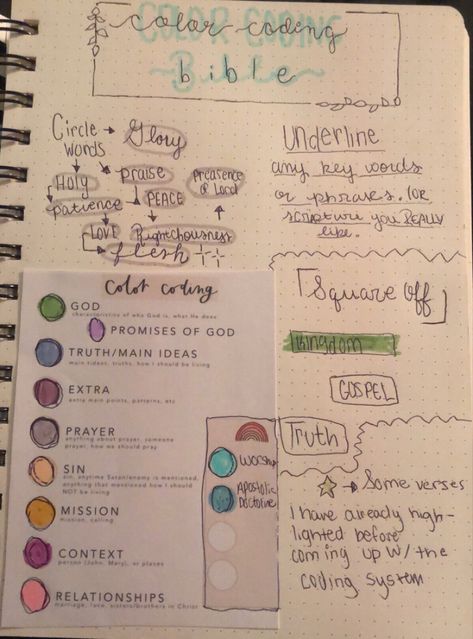 COLOR CODING
~Bible~
color coding
bible
Circle → Glory
words
Holy
praise
Preasence
of Lord
patience
PEACE
LOVE
Righteousness
flesh
Underline
any key words
or phrases. (or
scripture you REALLY
like.
Square Off
Kingdom
GOSPEL
Truth
☆ → Some verses
I have already high-
lighted before
coming up w/ the
coding system
Color coding
GOD
characteristics of who God is, what He does
PROMISES OF GOD
TRUTH/MAIN IDEAS
main tident, truths, how I should be living
EXTRA
extra main points, patterns, etc
PRAYER
anything about prayer, someone
prayer, how we should pray
SIN
sin, anytime Satan/enemy is mentioned,
anything that mentioned how I should
NOT be living
MISSION
mission, calling
CONTEXT
person (John, Mary), or places
RELATIONSHIPS
marriage, love, sisters/brothers in Christ
Worship
Apostolic
Doctrine